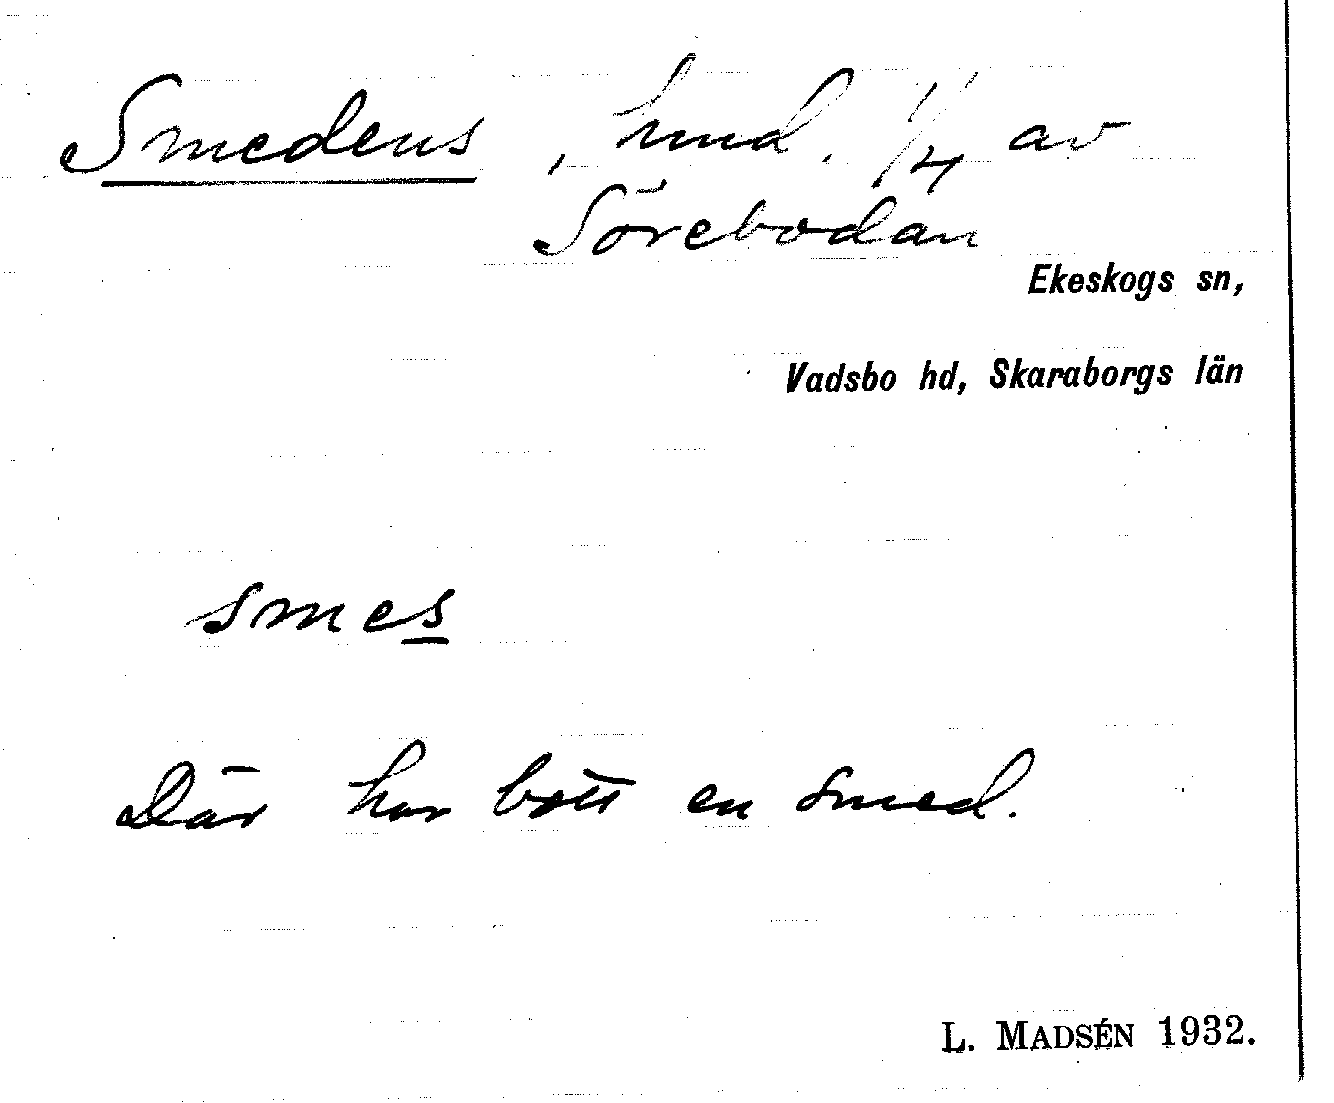 Smedens, hmd. 1/4 av
Sörebodan
Ekeskogs sn,
Vadsbo hd, Skaraborgs län
smes
Där har bott en smed.
L. MADSÉN 1932.